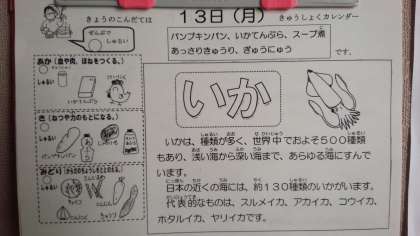 きょうのこんだては
13日(月)
きゅうしょくカレンダー
ぜんぶで
しゅるい
パンプキンパン、いかてんぷら、スープ煮
あっさりきゅうり、ぎゅうにゅう
です。
あか(血や肉、ほねをつくる。)
しゅるい
き(ねつや力のもとになる。)
しゅるい
みどり(からだのちょうしをととのえる。)
しゅるい
いか
いかは、種類が多く、世界中でおよそ500種類
もあり、浅い海から深い海まで、あらゆる海にすんで
います。
日本の近くの海には、約130種類のいかがいます。
代表的なものは、スルメイカ、アカイカ、コウイカ、
ホタルイカ、ヤリイカです。